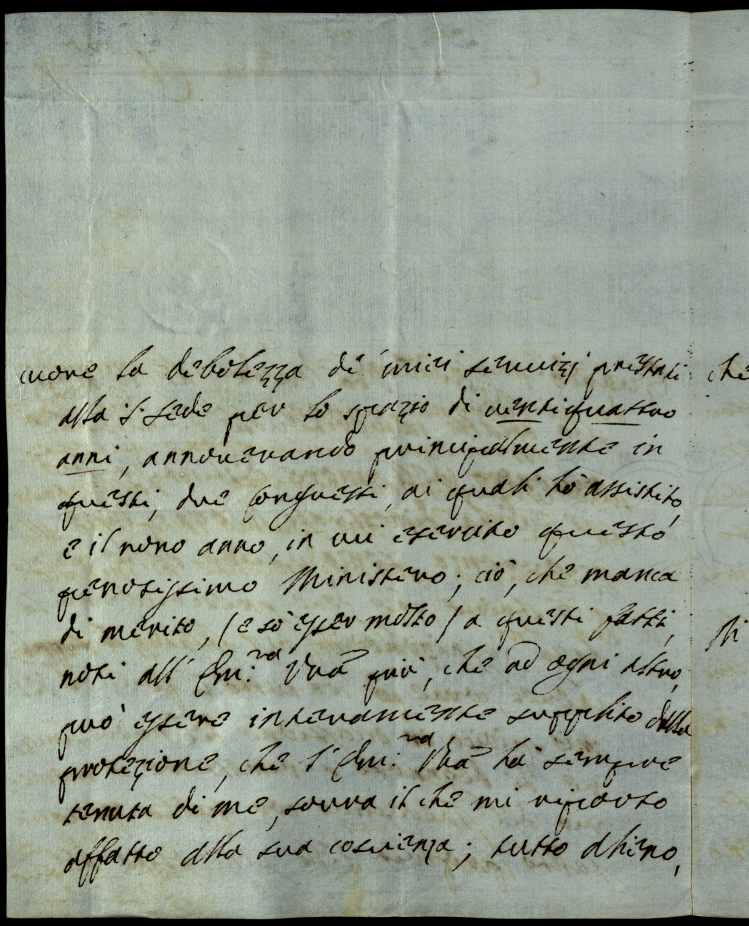 cuore la debolezza de' miei servizj prestati che
alla S. Sede per lo spazio di ventiquattro
anni, annoverando principalmente in
questi, due Congressi, ai quali hò assistito,
e il nono anno, in cui esercito questo
penosissimo Ministero; ciò, che manca
di merito, (e sò esser molto) a questi fatti,
noti all' Em:za Vra più, che ad ogni altro,
può essere interamente supplito dalla
protezione, che l' Em:za Vra hà sempre
tenuta di me, sovra il che mi riporto
affatto alla sua coscienza; tutto alieno,